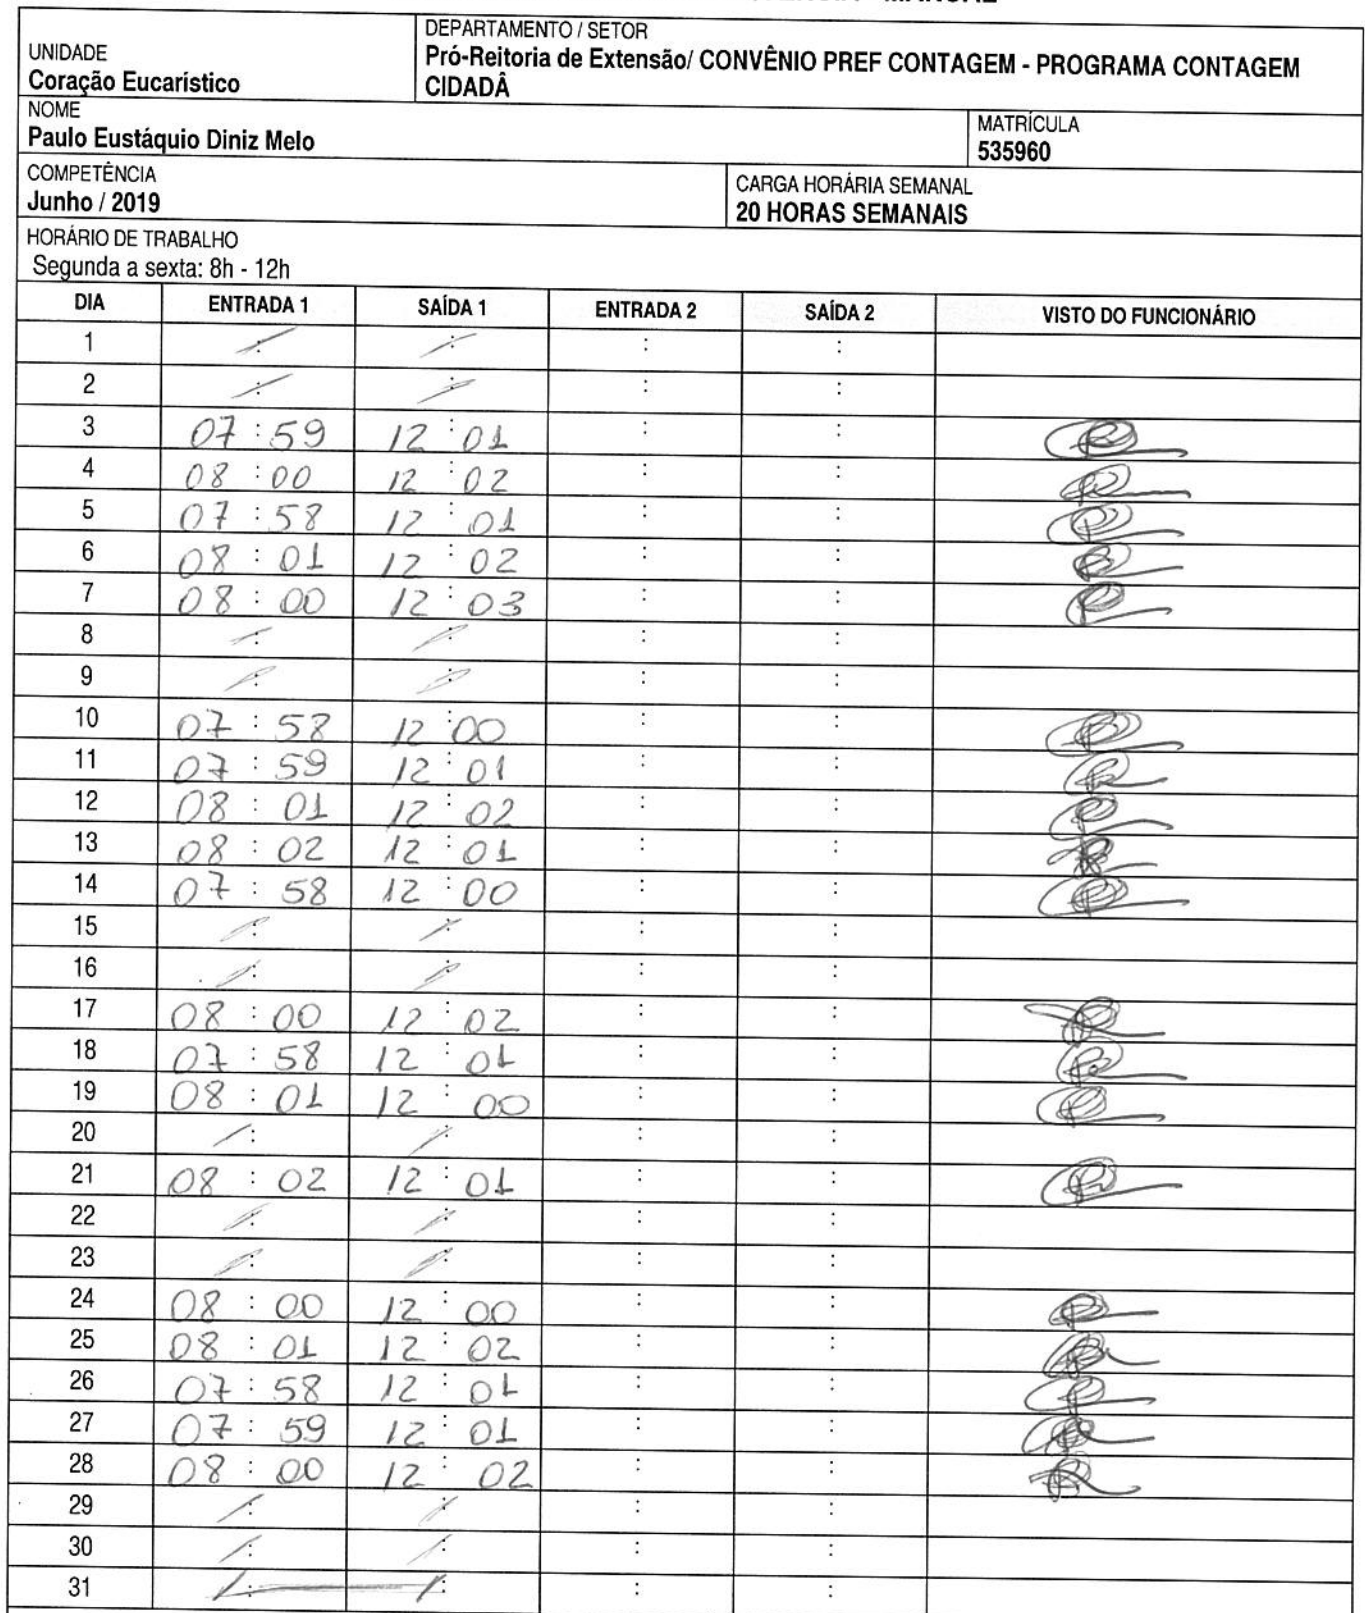 UNIDADE
Coração Eucarístico
DEPARTAMENTO / SETOR
Pró-Reitoria de Extensão/ CONVÊNIO PREF CONTAGEM - PROGRAMA CONTAGEM
CIDADÂ
NOME
Paulo Eustáquio Diniz Melo
MATRÍCULA
535960
COMPETÊNCIA
Junho / 2019
CARGA HORÁRIA SEMANAL
20 HORAS SEMANAIS
HORÁRIO DE TRABALHO
Segunda a sexta: 8h - 12h
DIA ENTRADA 1 SAÍDA 1 ENTRADA 2 SAÍDA 2 VISTO DO FUNCIONÁRIO
1 : : : :
2 : : : :
3 07:59 12:01 : :
4 08:00 12:02 : :
5 07:58 12:01 : :
6 08:01 12:02 : :
7 08:00 12:03 : :
8 : : : :
9 : : : :
10 07:58 12:00 : :
11 07:59 12:01 : :
12 08:01 12:02 : :
13 08:02 12:01 : :
14 07:58 12:00 : :
15 : : : :
16 : : : :
17 08:00 12:02 : :
18 07:58 12:01 : :
19 08:01 12:00 : :
20 : : : :
21 08:02 12:01 : :
22 : : : :
23 : : : :
24 08:00 12:00 : :
25 08:01 12:02 : :
26 07:58 12:01 : :
27 07:59 12:01 : :
28 08:00 12:02 : :
29 : : : :
30 : : : :
31 : : : :